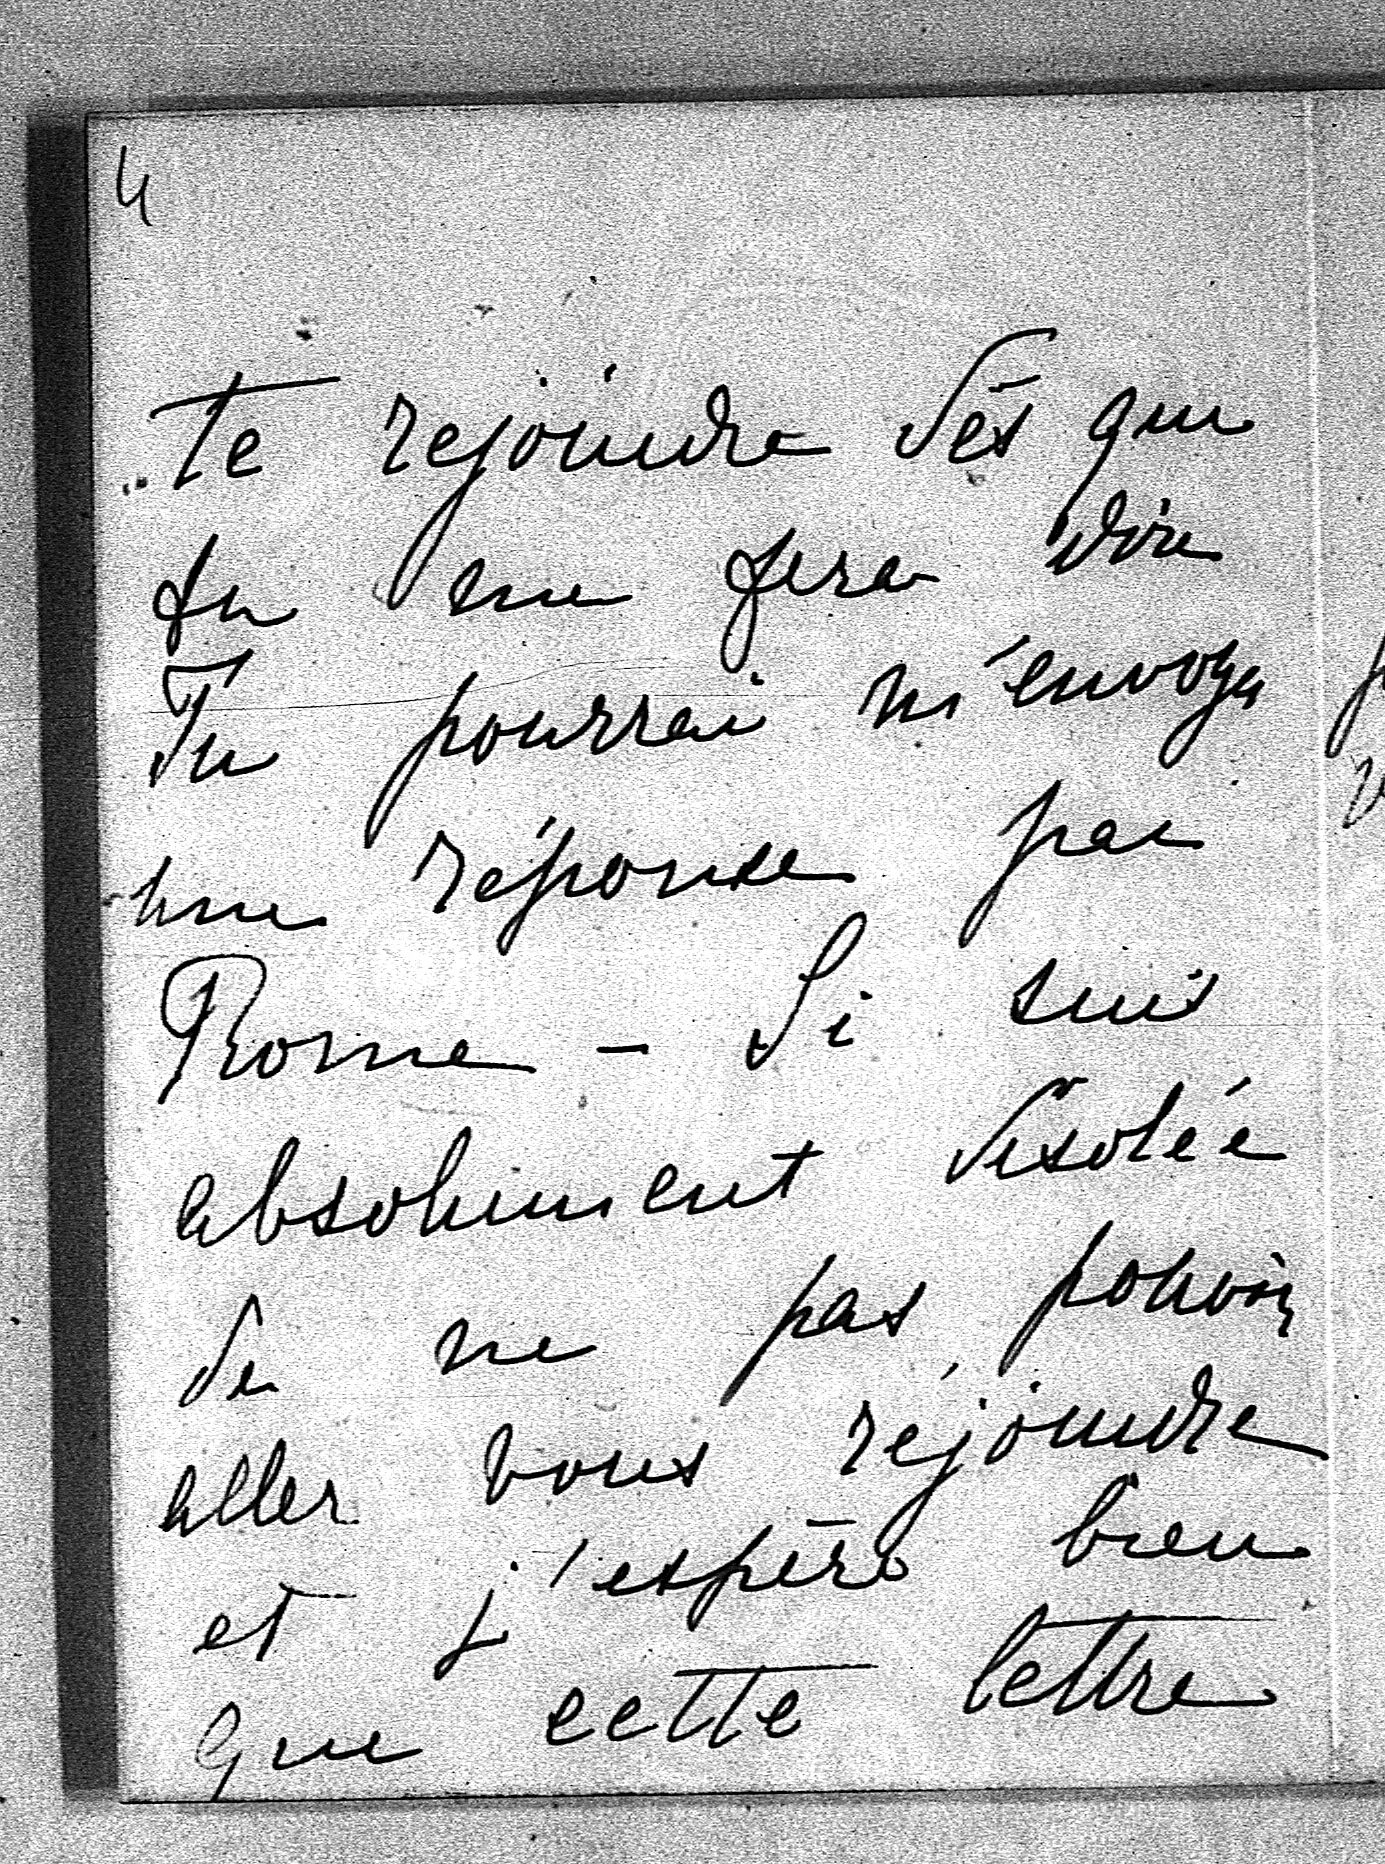 4
te rejoindre dès que
tu me fera dire
Tu pourrai m'envoyer
une réponse par
Rome - Si suis
absolument désolée
de ne pas pouvoir
aller vous réjoindre
et j'espère bien
que cette lettre